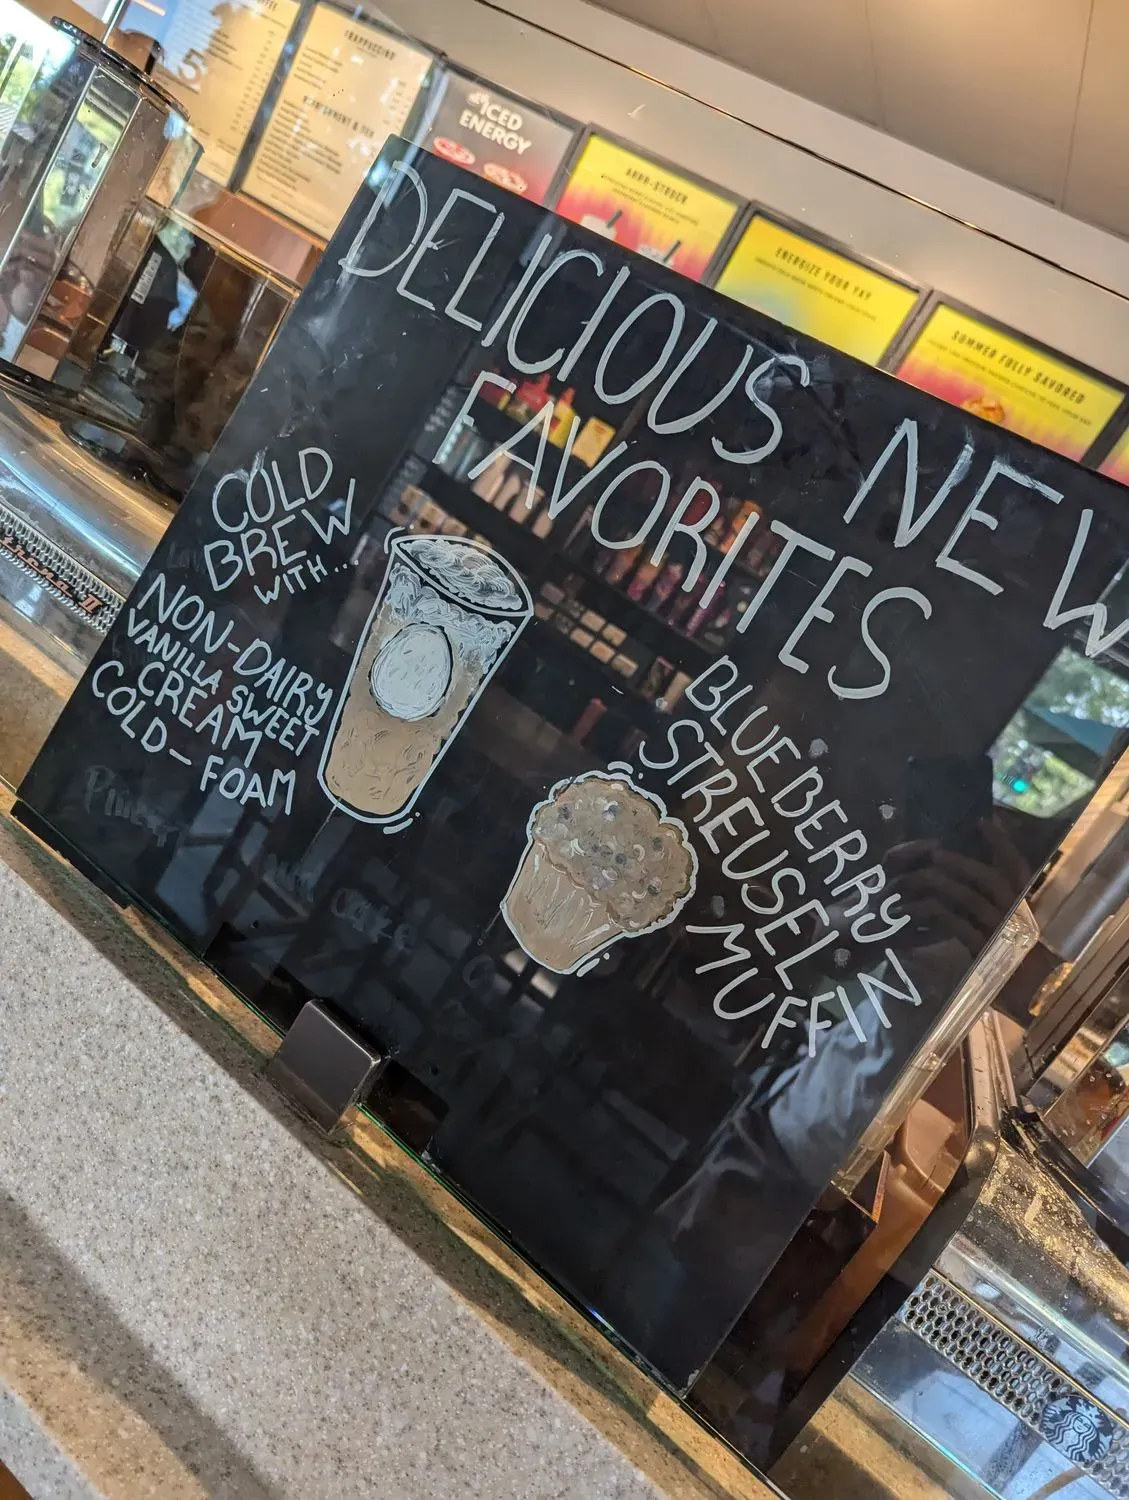 FRAPPUCCINO
ICED
ENERGY
ENERGIZE YOUR YAY
SUMMER FULLY SAVORED
DELICIOUS NEW
FAVORITES
COLD
BREW
WITH...
NON-DAIRY
VANILLA SWEET
CREAM
COLD-FOAM
BLUEBERRY
STREUSEL
MUFFIN